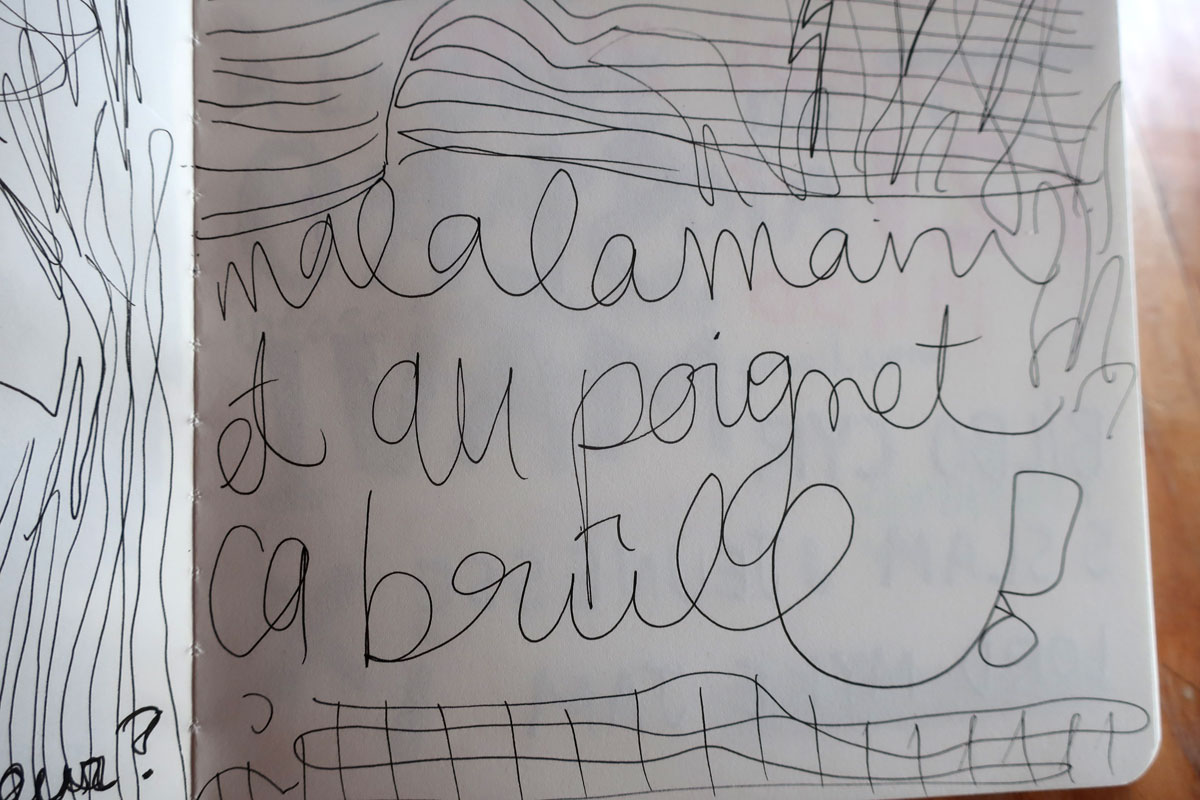 mal a la main
et au poignet
ça brûle !